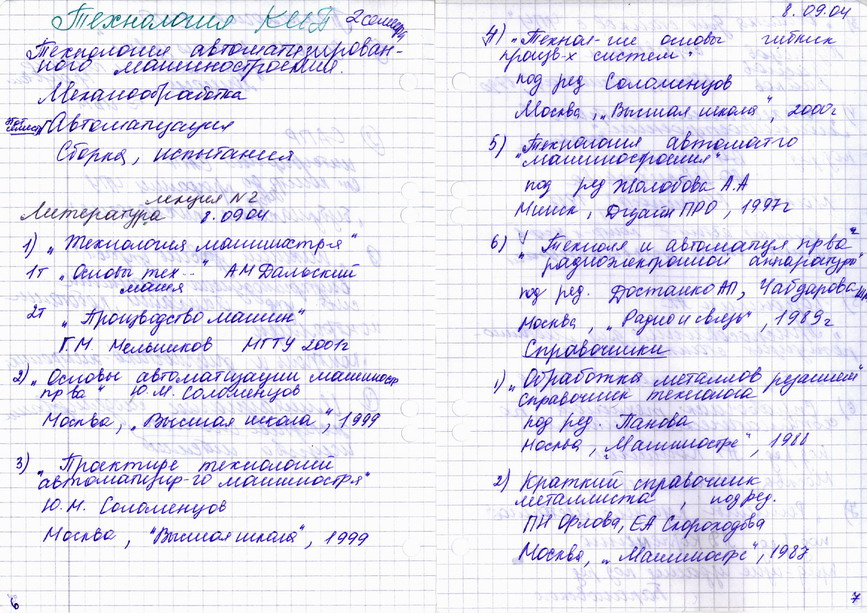 Технология КИП 2 семестр
Технология автоматизирован-
ного машиностроения.
Механообработка
Автоматизация
Сборка, испытания
лекция №2
Литература 8.09.04
1) "Технология машиностр-я"
1т "Основы тех..." АМ Дальский
машя
2т "Производство машин"
Г.М. Мельников МГТУ 2001г
2) "Основы автоматизации машиностр
пр-ва" Ю.М. Соломенцов
Москва, "Высшая школа", 1999
3) "Проектир-е технологий
автоматизир-го машиностр-я"
Ю.М. Соломенцов
Москва, "Высшая школа", 1999
6
8.09.04
4) "Технол-ие основы гибких
произв-х систем"
под ред Соломенцов
Москва, "Высшая школа", 2000г
5) "Технология автоматго
"машиностроения"
под ред Жолобова А.А
Минск, ДизайнПРО, 1997г
6) "Технол-я и автоматиз-я пр-ва
радиоэлектронной аппаратуры"
под ред. Достанко АП, Чабдарова
Москва, "Радио и связь", 1989г
Справочники
1) "Обработка металлов резанием"
справочник технолога
под ред. Панова
Москва, "Машиностр-е", 1988
2) Краткий справочник
металлиста, под ред.
ПН Орлова, ЕА Скороходова
Москва, "Машиностр-е", 1987
7